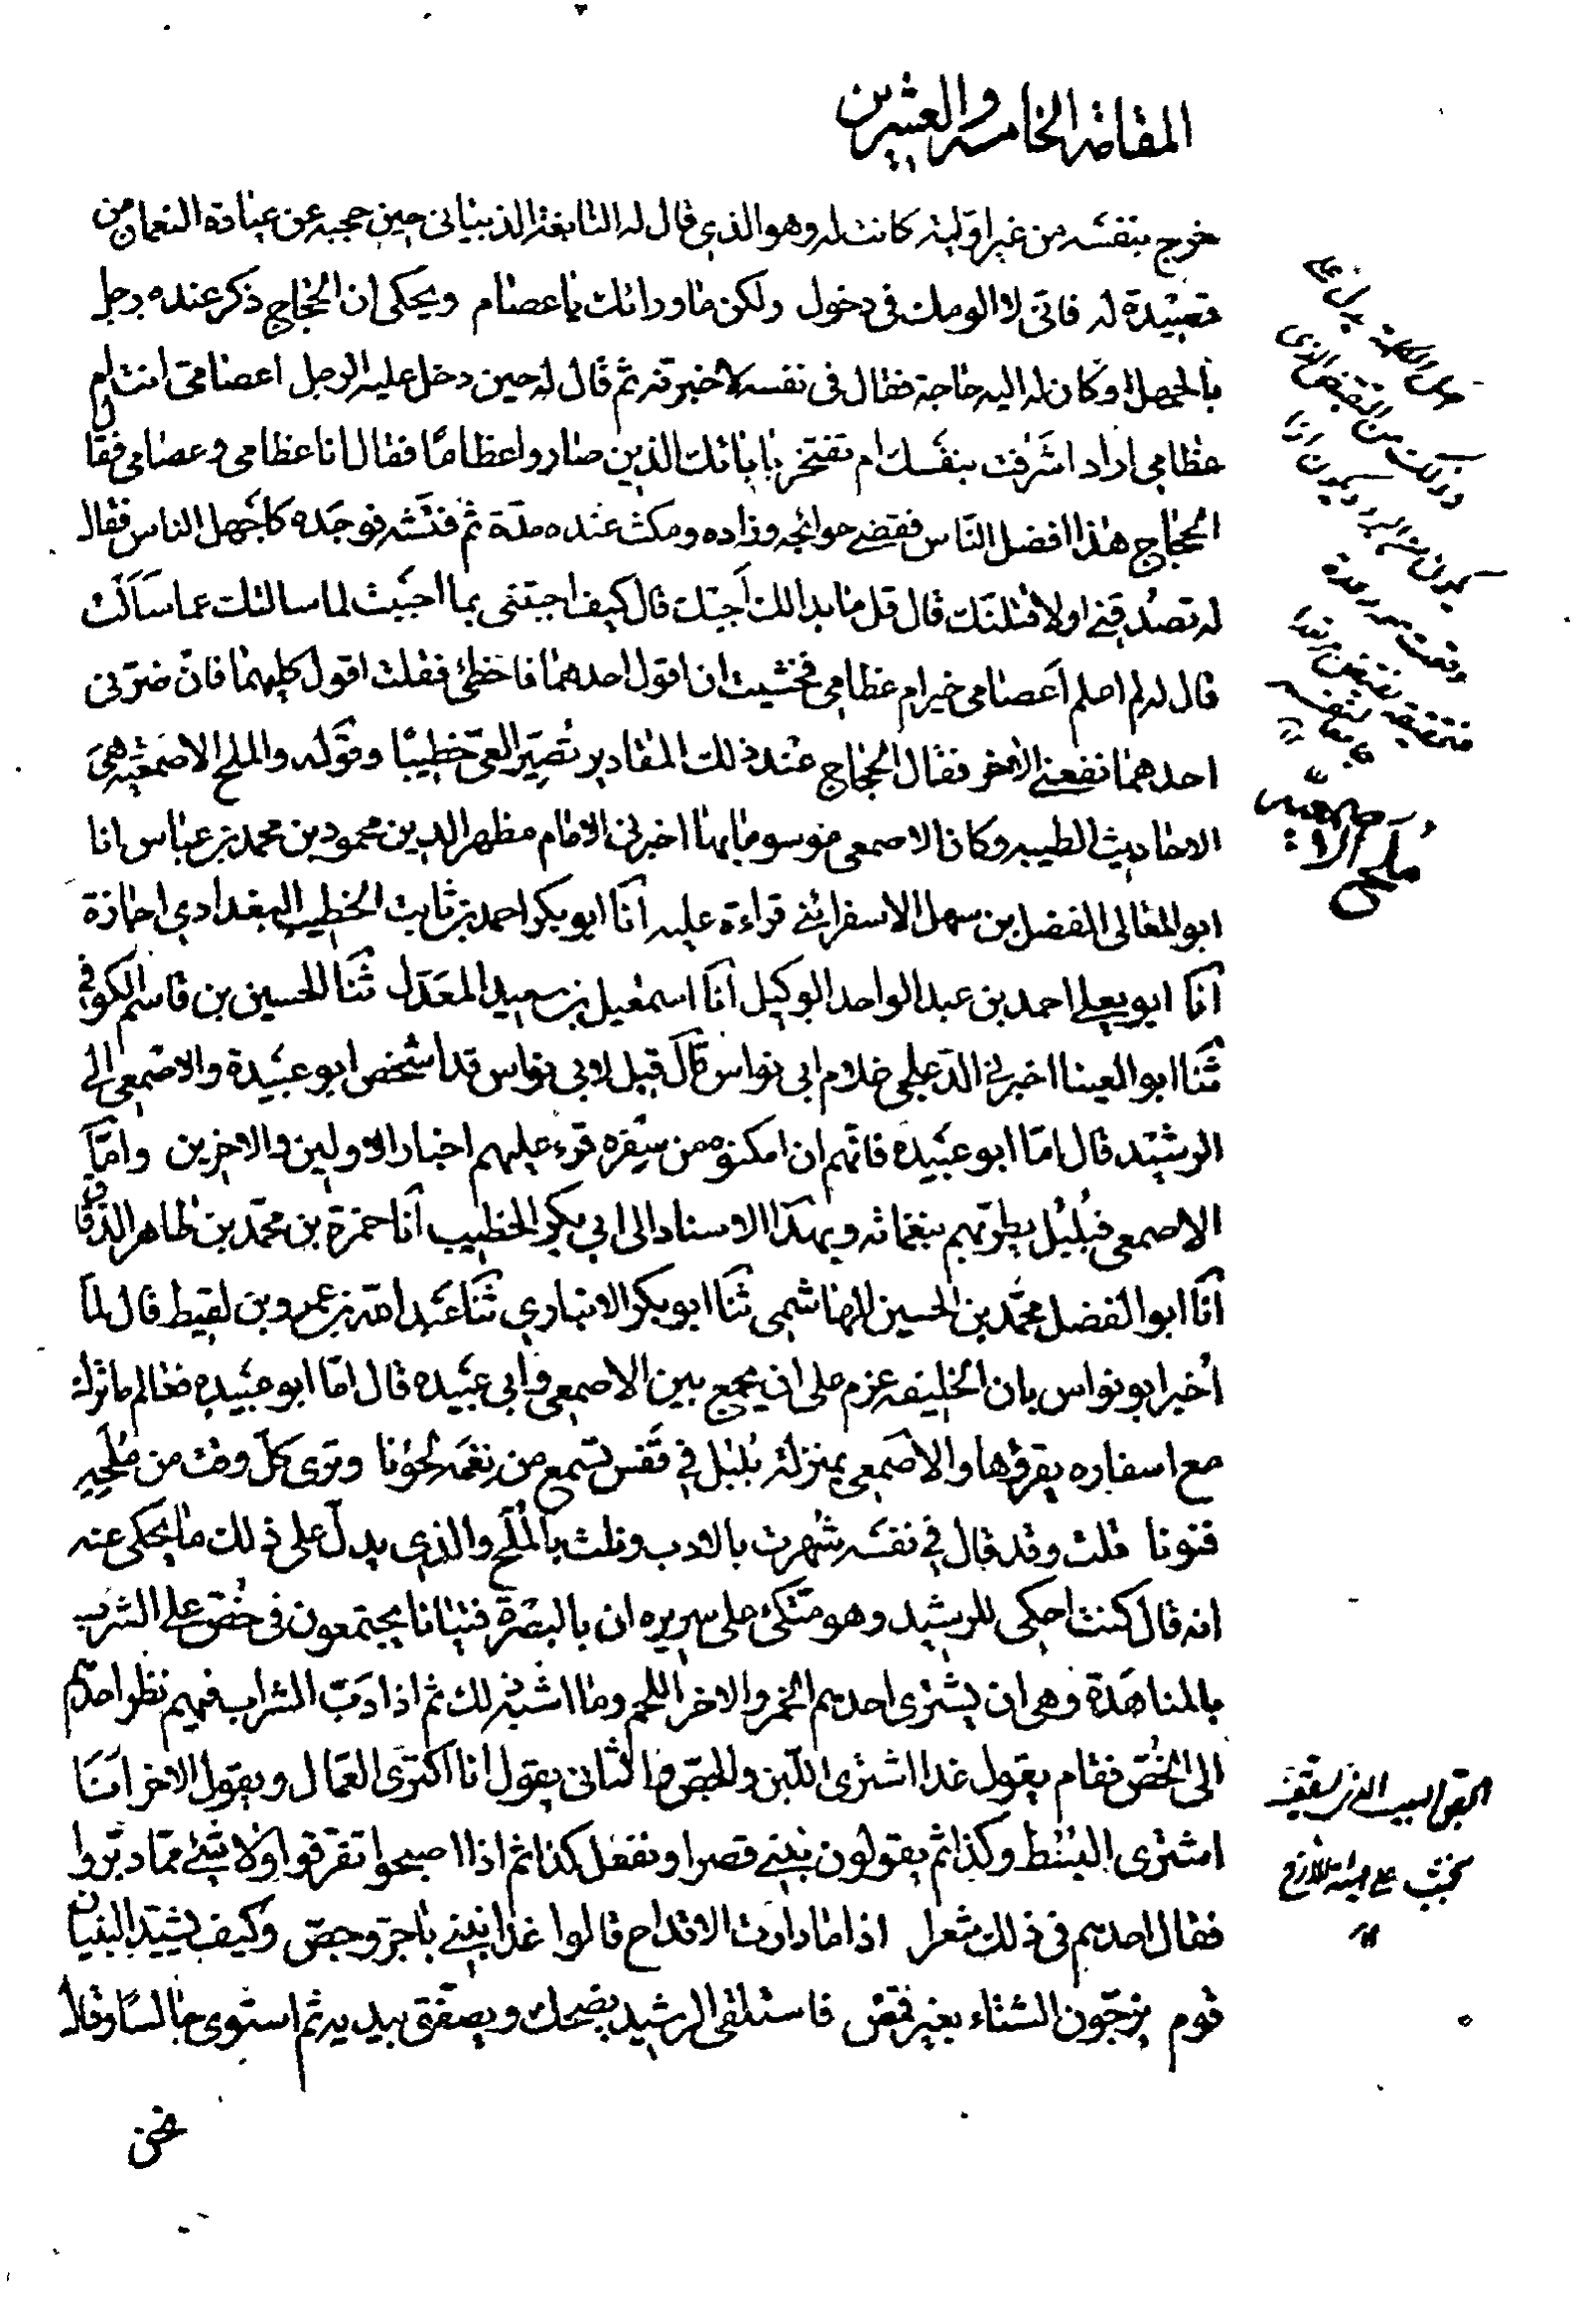 المقامة الخامسة والعشرين
خرج بنفسه من غير اولية كانت له وهو الذي قال له النابغة الذبياني حين حجبه عن عيادة النعمان من
قصيدة له فاني لا الومك في دخول ولكن ما ورائك يا عصام ويحكى ان الحجاج ذكر عنده رجل
بالجهل وكان له اليه حاجة فقال في نفسه لاخبرنه ثم قال له حين دخل عليه الرجل اعصامى انت ام
عظامي اراد اشرفت بنفسك ام تفتخر بابائك الذين صاروا عظاما فقال انا عظامى وعصامى فقال
الحجاج هذا افضل الناس فقضى حوائجه وزاده ومكث عنده مدة ثم فتشه فوجده كاجهل الناس فقال
له تصدقني اولا قتلنك قال قل ما بدا لك اجبك قال كيف اجبتني بما اجبت لما سالتك عما سالتك
قال له لم اعلم اعصامى خير ام عظامي فخشيت ان اقول احدهما فاخطئ فقلت اقول كليهما فان ضرني
احدهما نفعني الاخر فقال الحجاج عند ذلك المقادير تصير العيّ خطيبا وقوله والملح الاصمعيه هى
الاحاديث الطيبه وكان الاصمعى موسوما بها اخبرني الامام مظهر الدين محمود بن محمد بن عباس انا
ابو المعالى الفضل بن سهل الاسفرائني قراءة عليه انا ابو بكر احمد بن ثابت الخطيب البغدادي اجازة
انا ابو يعلى احمد بن عبد الواحد الوكيل انا اسمعيل بن سعيد المعدل ثنا الحسين بن قاسم الكوفي
ثنا ابو العينا اخبرني الدعلجى غلام ابى نواس قال قيل لابى نواس قد اشخص ابو عبيدة والاصمعى الى
الرشيد قال امّا ابو عبيده فانهم ان امكنوه من سفره قرء عليهم اخبار الاولين والاخرين وامّا
الاصمعى فبلبل يطربهم بنغماته وبهذا الاسناد الى ابي بكر الخطيب انا حمزة بن محمد بن طاهر الدقاق
انا ابو الفضل محمد بن الحسين الهاشمى ثنا ابو بكر الانباري ثنا عبد الله بن عمرو بن لقيط قال لما
اخبر ابو نواس بان الخليفه عزم على ان يجمع بين الاصمعى وابى عبيده قال امّا ابو عبيده فعالم ما ترك
مع اسفاره يقرؤها والاصمعى بمنزلة بلبل في قفس تسمع من نغمه لحونا وترى كلّ وقت من ملحه
فنونا قلت وقد قال في نفسه شهرت بالادب ونلت بالملح والذي يدلّ على ذلك ما يحكى عنه
انه قال كنت احكى للرشيد وهو متكئ على سريره ان بالبصرة فتيانا يجتمعون فى خصّ على الشرب
بالمناهدة وهى ان يشترى احدهم الخمر والاخر اللحم وما اشبه ذلك ثم اذا دبّ الشراب فيهم نظر احدهم
الى الخصّ فقام يقول غدا اشترى اللبن والجصّ والثانى يقول انا اكترى العمال ويقول الاخر امنا
اشترى البسط وكذا ثم يقولون نبني قصرا ونفعل كذا ثم اذا اصبحوا تفرقوا ولا شئ مما دبّروا
فقال احدهم فى ذلك شعرا اذا ما دارت الاقداح قالوا غدا نبني باجرّ وجصّ وكيف يشيّد البنيان
قوم يزجّون الشتاء بغير قمص فاستلقى الرشيد يضحك ويصفق بيديه ثم استوى جالسا وقال
نحن
ملح الاصمعيه